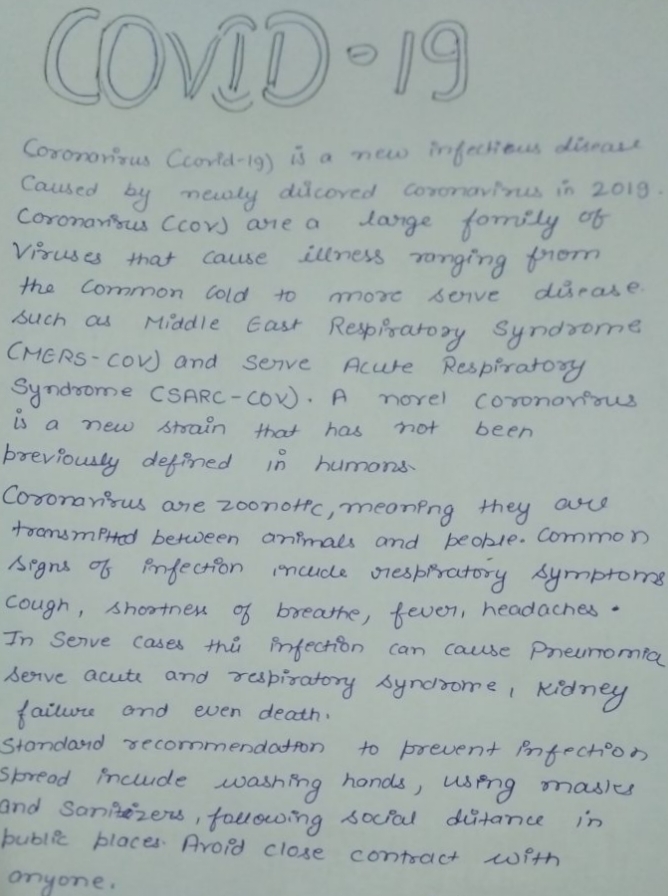 COVID-19
Coronavirus (covid-19) is a new infectious disease
Caused by newly discored coronavirus in 2019.
Coronavirus (cov) are a large family of
Viruses that cause illness ranging from
the Common Cold to more serve disease.
such as Middle East Respiratory Syndrome
(MERS-COV) and Serve Acute Respiratory
Syndrome (SARC-COV). A novel coronavirus
is a new strain that has not been
previously defined in humans.
Coronavirus are zoonotic, meaning they are
transmitted between animals and people. Common
signs of infection include respiratory symptoms
Cough, shortness of breathe, fever, headaches.
In Serve cases this infection can cause Pneumomia
serve acute and respiratory syndrome, kidney
failure and even death.
Standard recommendation to prevent infection
spread include washing hands, using masks
and Sanitizers, following social distance in
public places. Avoid close contract with
anyone.